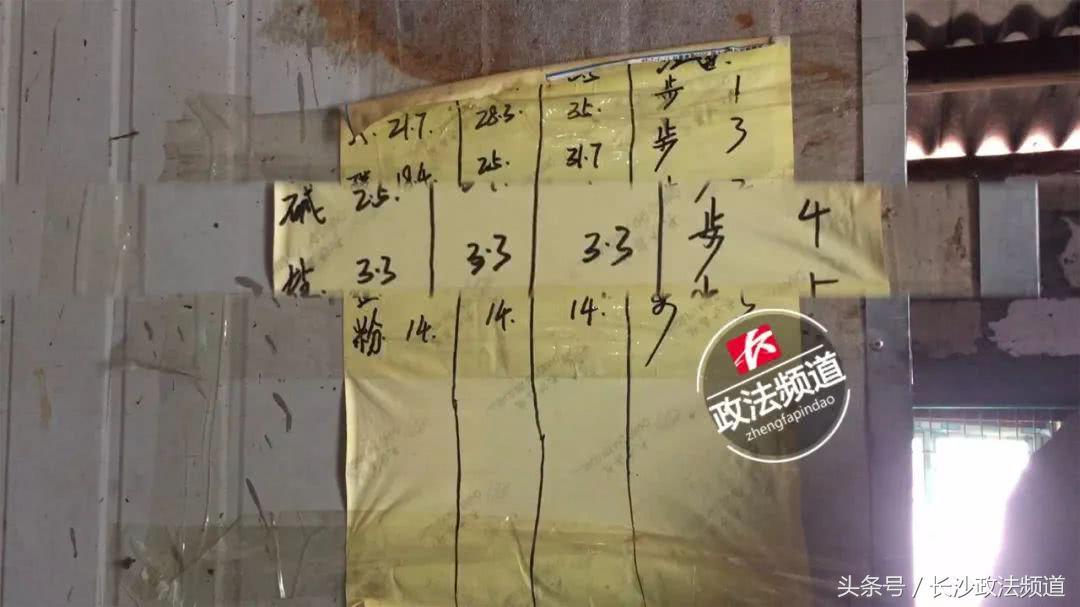 21.7. 28.3. 35. 步 1
19.4. 25. 31.7 步 3
碱 25.
3.3 3.3 3.3 步 4
粉 14. 14. 14.
长
政法频道
zhengfapindao
头条号 / 长沙政法频道